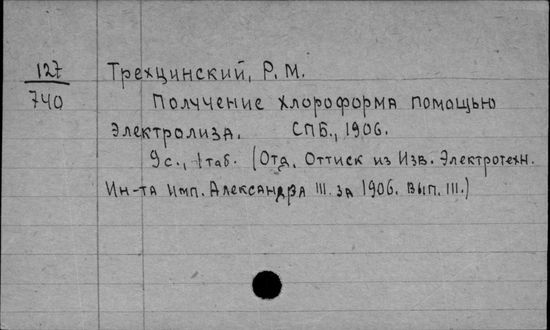 127
740
Трехцинский, Р. М.
Полччение хлороформа помощью
электролиза. СПБ., 1906.
9с., 1таб. (Отд. Оттиск из Изв. Электротехн.
Ин-та Имп. Александра III. за 1906. Вып. III.)